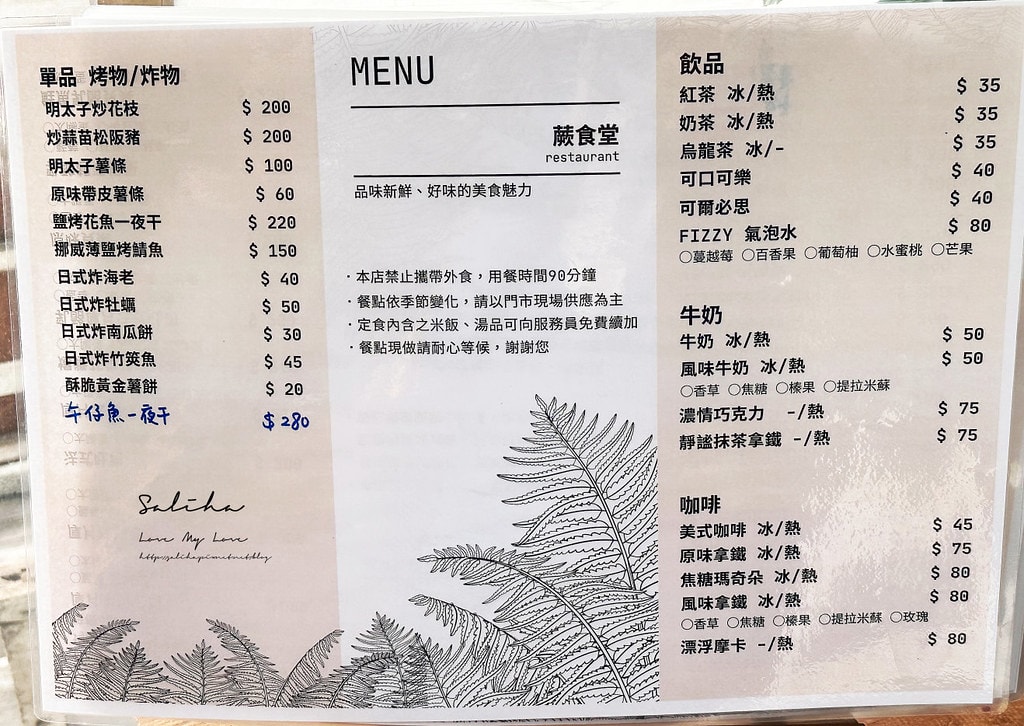 單品 烤物/炸物
明太子炒花枝 $ 200
炒蒜苗松阪豬 $ 200
明太子薯條 $ 100
原味帶皮薯條 $ 60
鹽烤花魚一夜干 $ 220
挪威薄鹽烤鯖魚 $ 150
日式炸海老 $ 40
日式炸牡蠣 $ 50
日式炸南瓜餅 $ 30
日式炸竹筴魚 $ 45
酥脆黃金薯餅 $ 20
午仔魚一夜干 $280
Saliha
Love My Love
MENU
蕨食堂
restaurant
品味新鮮、好味的美食魅力
·本店禁止攜帶外食，用餐時間90分鐘
·餐點依季節變化，請以門市現場供應為主
·定食內含之米飯、湯品可向服務員免費續加
·餐點現做請耐心等候，謝謝您
飲品
紅茶 冰/熱 $ 35
奶茶 冰/熱 $ 35
烏龍茶 冰/- $ 35
可口可樂 $ 40
可爾必思 $ 40
FIZZY 氣泡水 $ 80
○蔓越莓 ○百香果 ○葡萄柚 ○水蜜桃 ○芒果
牛奶
牛奶 冰/熱 $ 50
風味牛奶 冰/熱 $ 50
○香草 ○焦糖 ○榛果 ○提拉米蘇
濃情巧克力 -/熱 $ 75
靜謐抹茶拿鐵 -/熱 $ 75
咖啡
美式咖啡 冰/熱 $ 45
原味拿鐵 冰/熱 $ 75
焦糖瑪奇朵 冰/熱 $ 80
風味拿鐵 冰/熱 $ 80
○香草 ○焦糖 ○榛果 ○提拉米蘇 ○玫瑰
漂浮摩卡 -/熱 $ 80